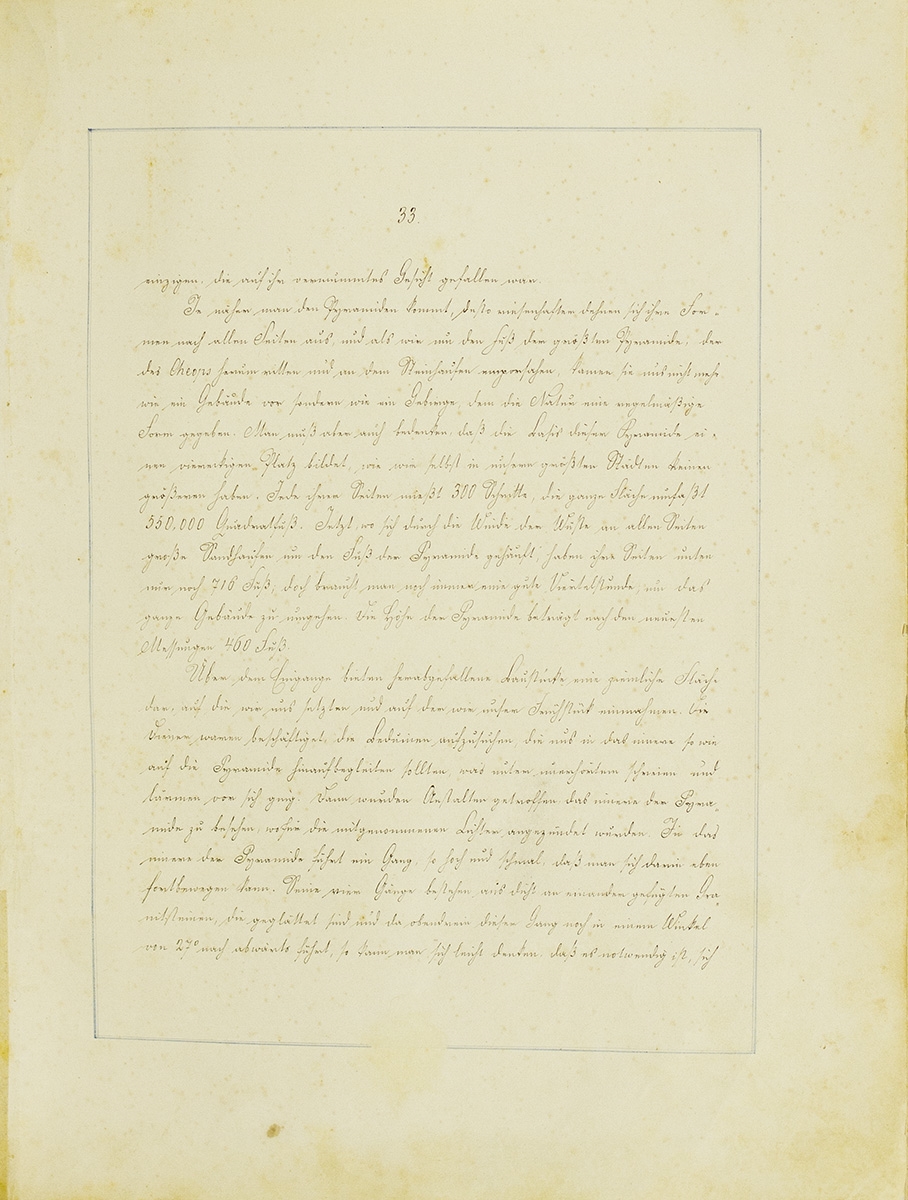 33.
einzigen, die auf ihr vermummtes Gesicht gefallen war.
Je näher man den Pyramiden kommt, desto riesenhafter dehnen sich ihre For-
men nach allen Seiten aus und als wir um den Fuß der größten Pyramide, der
des Cheops herum ritten und an dem Steinhaufen emporsahen, kamen sie uns nicht mehr
wie ein Gebäude vor sondern wie ein Gebirge, dem die Natur eine regelmäßige
Form gegeben. Man muß aber auch bedenken, daß die Basis dieser Pyramide ei-
nen viereckigen Platz bildet, wie wir selbst in unsern größten Städten keinen
größeren haben. Jede ihrer Seiten mießt 300 Schritte, die ganze Fläche umfaßt
550.000 Quadratfuß. Jetzt, wo sich durch die Winde der Wüste an allen Seiten
große Sandhaufen um den Fuß der Pyramide gehäuft, haben ihre Seiten unten
nur noch 716 Fuß, doch braucht man noch immer eine gute Viertelstunde, um das
ganze Gebäude zu umgehen. Die Höhe der Pyramide beträgt nach den neuesten
Messungen 460 Fuß.
Über dem Eingange bieten herabgefallene Baustücke eine ziemliche Fläche
dar, auf die wir uns setzten und auf der wir unser Frühstück einnahmen. Die
Diener waren beschäftiget, die Beduinen aufzusuchen, die uns in das innere so wie
auf die Pyramide hinaufbegleiten sollten, was unter unerhörtem schreien und
lärmen vor sich ging. Dann wurden Anstalten getroffen das innere der Pyra
mide zu besehen, wofür die mitgenommenen Lichter angezündet wurden. In das
innere der Pyramide führt ein Gang, so hoch und schmal, daß man sich darin eben
fortbewegen kann. Seine vier Gänge bestehen aus dicht an einander gefügten Gra-
nitsteinen, die geglättet sind und da obendrein dieser Gang noch in einem Winkel
von 27° nach abwärts führt, so kann man sich leicht denken, daß es notwendig ist, sich